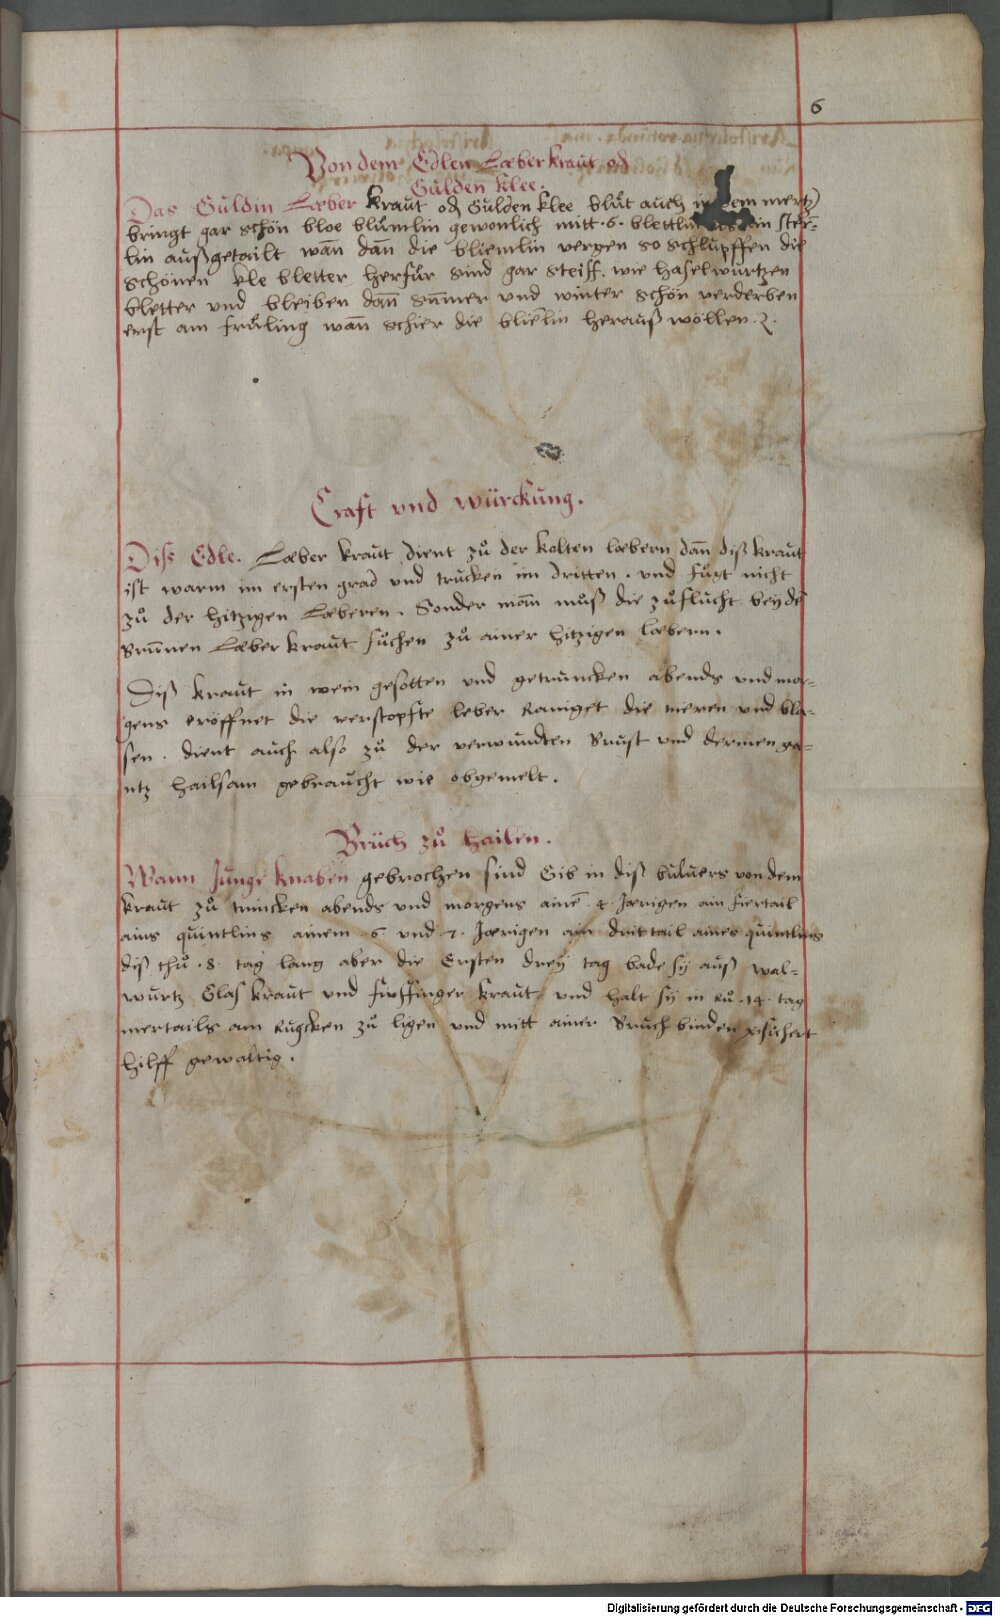 6
Von dem Edlen Læber kraut od
Gulden klee.
Das Guldin Læber kraut od Gulden klee blůt auch in dem mertz
bringt gar schön bloe blůmlin gewonlich mitt .6. blettlin ain ster¯=
lin außgetailt wan̄ dan̄ die bliemlin vergen so schlupffen die
schönen kle bletter herfůr sind gar steiff wie haselwurtzen
bletter vnd bleiben dan̄ sum̄er vnd winter schön verderben
erst am frůling wan̄ schier die blie̅lin herauß wöllen .2.
Craft vnd würckung.
Diss Edle. Læber kraut dient zů der kolten læbern dan̄ diß kraut
ist warm im ersten grad vnd trucken im dritten . vnd fůgt nicht
zů der hitzigen Læberen . Sonder man̄ můß die zůflucht bey de̅
Brun̄en Læber kraut sůchen zů ainer hitzigen læbern .
Diß kraut in wein gesotten vnd getruncken abends vnd mor=
gens eröffnet die verstopfte leber rainiget die nieren vnd bla=
sen . dient auch also zů der verwundten Brust vnd dermen ga=
ntz hailsam gebraucht wie obgemelt .
Brüch zů hailen.
Wann Junge knaben gebrochen sind Gib in diß buluers von dem
kraut zů trincken abends vnd morgens aine̅ .4. Jærigen ain fiertail
ains quintlins ainem 6 vnd 7. Jærigen ain drittail aines quintlins
diß thů .8. tag lang aber die Ersten drey tag bade sy auß wal=
wurtz Glas kraut vnd fünffinger kraut vnd halt sy in rů .14. tag
mertails am rugcken zů ligen vnd mitt ainer Bruch binden
hilff gewaltig .
Digitalisierung gefördert durch die Deutsche Forschungsgemeinschaft - DFG